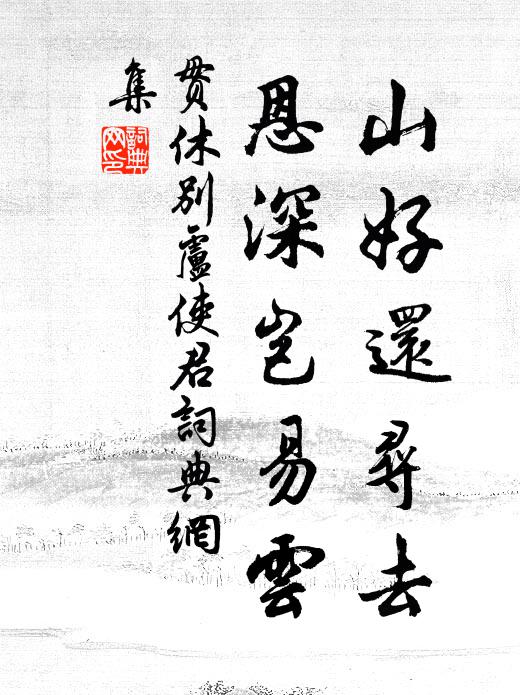 山好還尋去
恩深豈易雲
貫休別盧使君詞典網
集
詞典網印